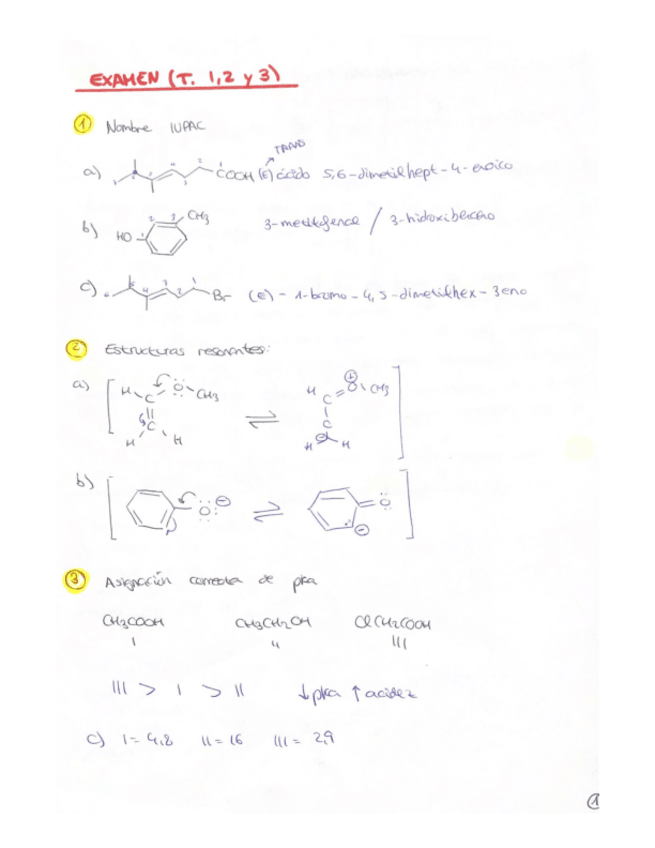 EXAMEN (T. 1,2 y 3)
1 Nombre IUPAC
TRANS
a) COOH (E) ácido 5,6-dimetilhept-4-enoico
b) HO CH3 3-metilfenol / 3-hidroxibenceno
c) Br (E)-1-bromo-4,5-dimetilhex-3eno
2 Estructuras resonantes:
a) H C O CH3 C H H ⇌ H C O CH3 C H H
b) O ⊖ ⇌ O ⊖
3 Asignación correcta de pka
CH3COOH CH3CH2OH ClCH2COOH
I II III
III > I > II ↓pka ↑acidez
c) I = 4,8 II = 16 III = 2,9
1